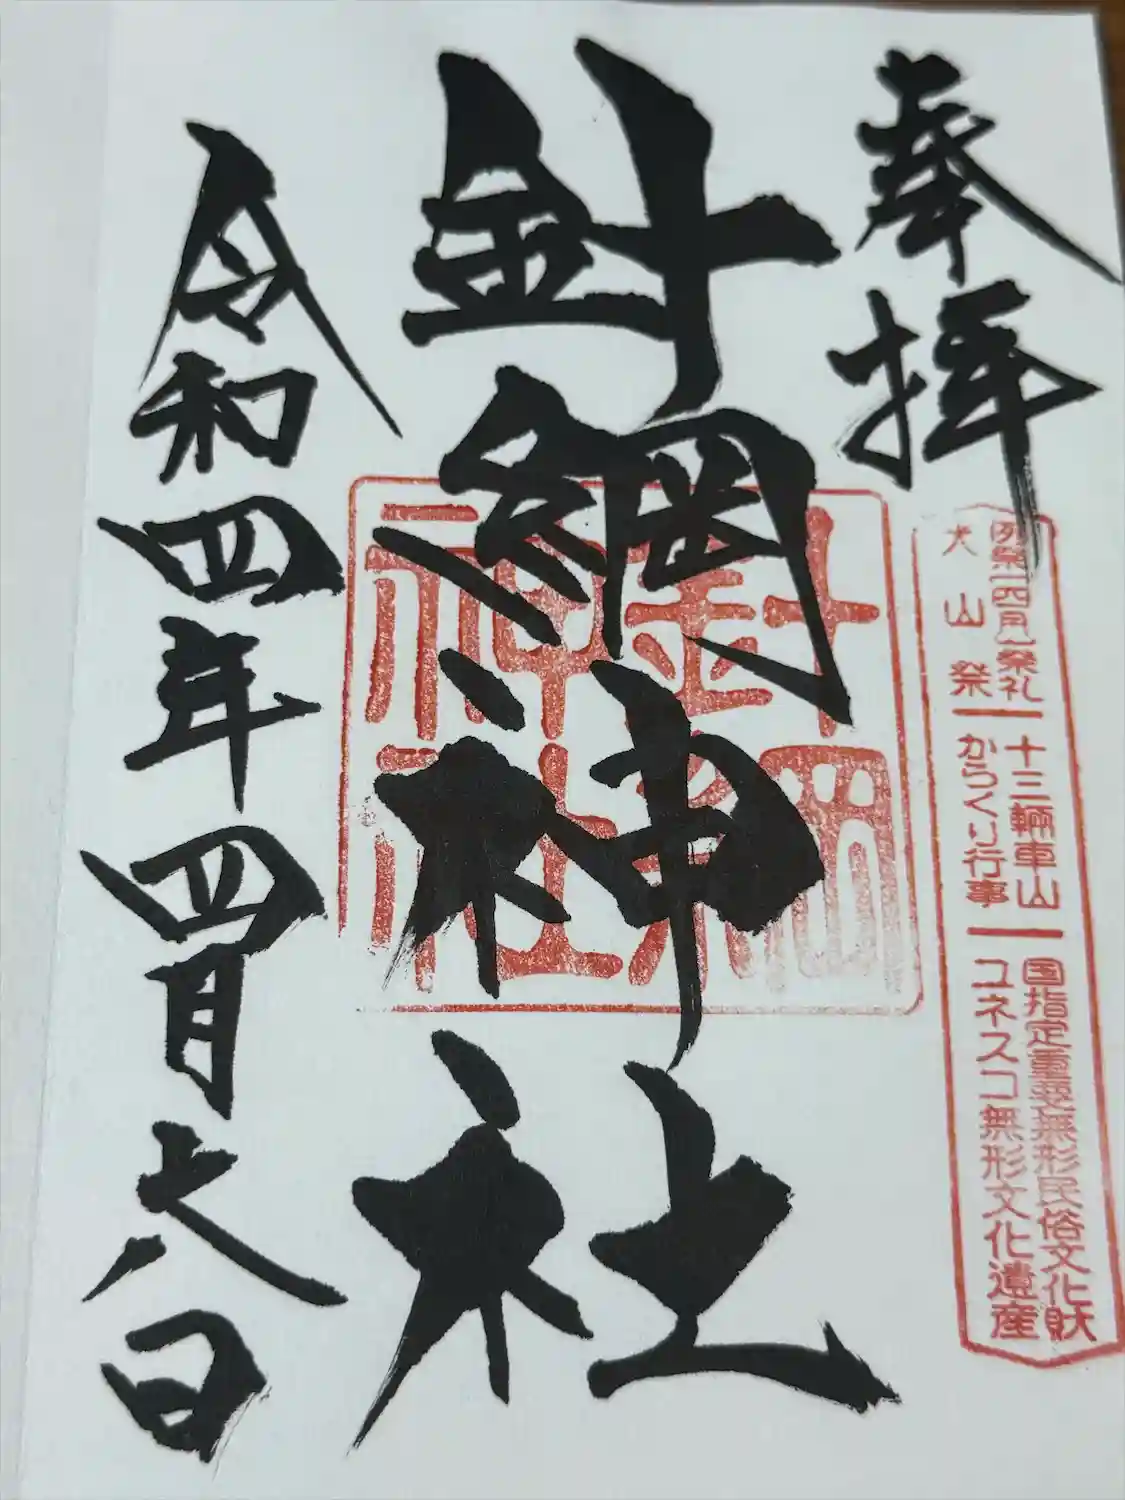 奉拝
例祭 四月 祭礼 十三輛車山 国指定重要無形民俗文化財
犬山祭 からくり行事 ユネスコ無形文化遺産
針綱神社
針綱
神社
令和四年四月 八日